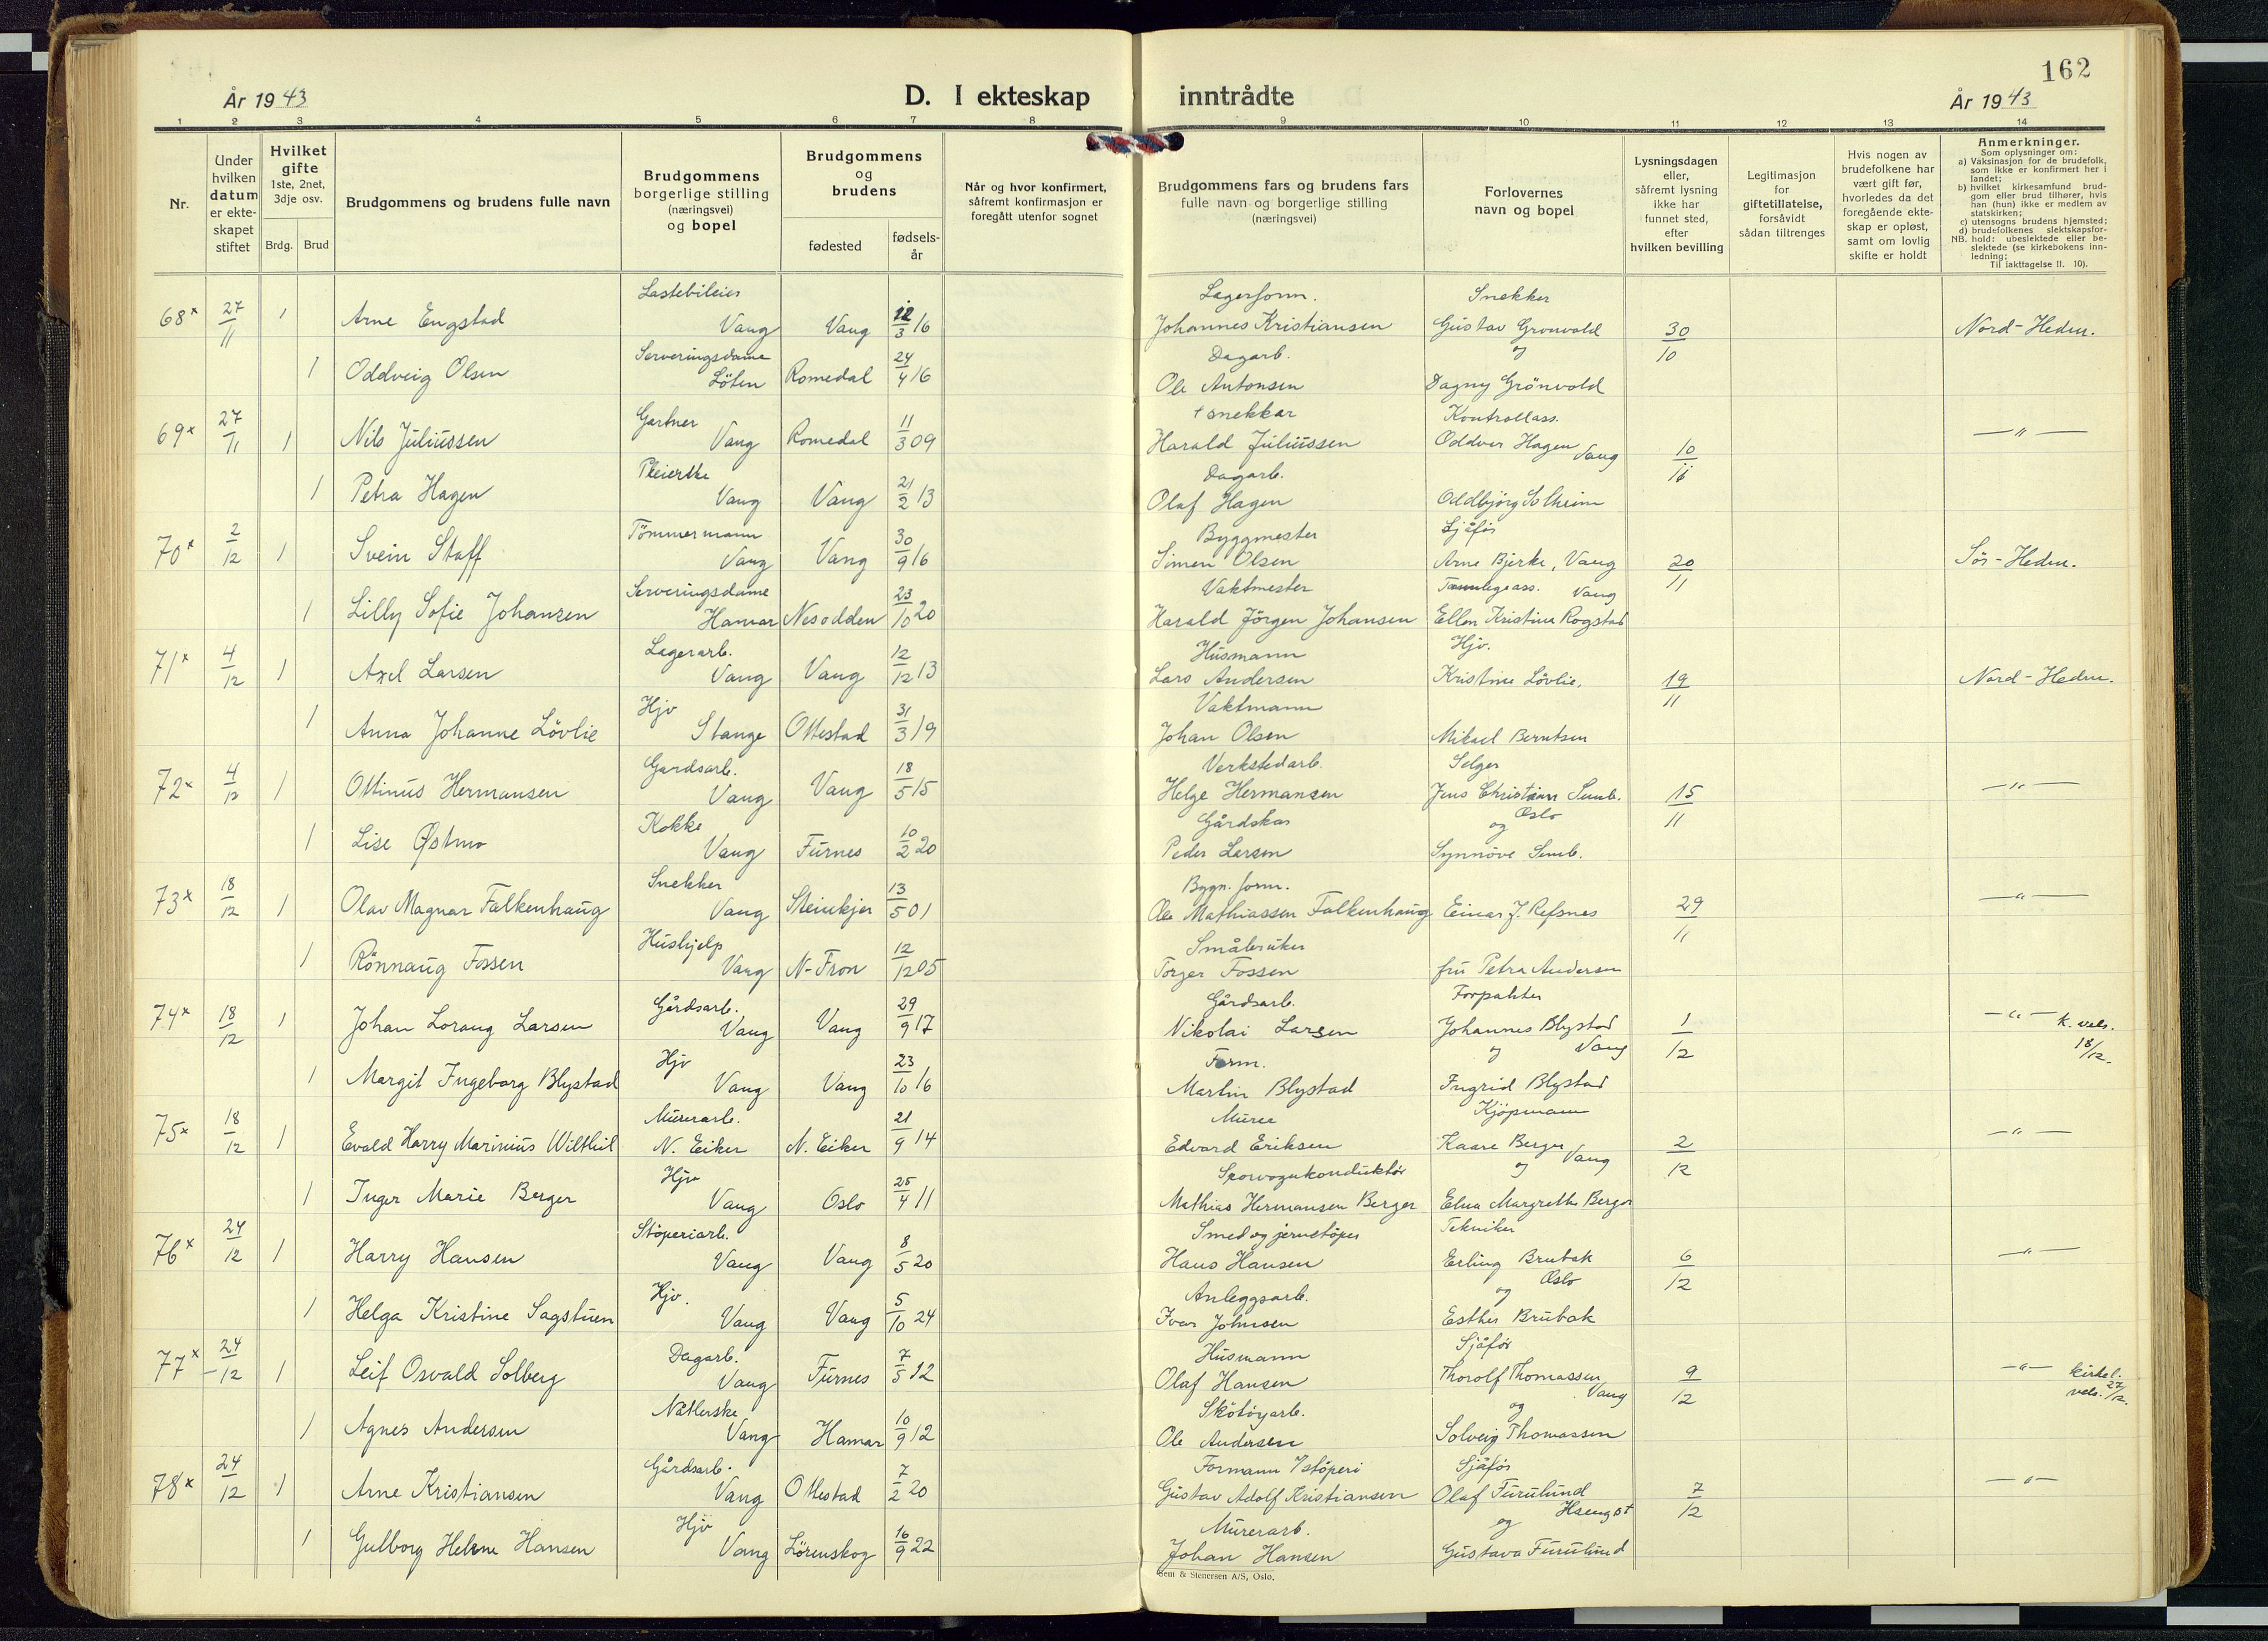 162
År 1943
D. I ekteskap inntrådte
År 1943
1 2 3 4 5 6 7 8 9 10 11 12 13 14
Nr.
Under hvilken datum er ekteskapet stiftet
Hvilket gifte 1ste, 2net, 3dje osv.
Brdg. Brud
Brudgommens og brudens fulle navn
Brudgommens borgerlige stilling (næringsvei) og bopel
Brudgommens og brudens
fødested
fødselsår
Når og hvor konfirmert, såfremt konfirmasjon er foregått utenfor sognet
Brudgommens fars og brudens fars fulle navn og borgerlige stilling (næringsvei)
Forlovernes navn og bopel
Lysningsdagen eller, såfremt lysning ikke har funnet sted, efter hvilken bevilling
Legitimasjon for giftetillatelse, forsåvidt sådan tiltrenges
Hvis nogen av brudefolkene har vært gift før, hvorledes da det foregående ekteskap er opløst, samt om lovlig skifte er holdt
Anmerkninger.
Som oplysninger om:
a) Vaksinasjon for de brudefolk, som ikke er konfirmert her i landet;
b) hvilket kirkesamfund brudgom eller brud tilhører, hvis han (hun) ikke er medlem av statskirken;
c) utensogns brudens hjemsted;
d) brudefolkenes slektskapsforhold: ubeslektede eller beslektede (se kirkebokens innledning;
NB.
Til iakttagelse II. 10).
68x 27/11 1 Arne Engstad Lastebileier Vang Vang 12/3 16 Lagerform. Johannes Kristiansen Snekker Gustav Grønvold og 30/10 Nord-Hedm.
1 Oddveig Olsen Serveringsdame Löten Romedal 24/4 16 Dagarb. Ole Antonsen Dagny Grönvold
69x 27/11 1 Nils Juliussen Gartner Vang Romedal 11/3 09 + snekker Harald Juliussen Kontrollass. Oddvar Hagen Vang 10/11 — " —
1 Petra Hagen Pleierske Vang Vang 21/2 13 Dagarb. Olaf Hagen Oddbjörg Solheim
70x 2/12 1 Svein Staff Tömmermann Vang Vang 30/9 16 Byggmester Simen Olsen Sjåför Arne Bjerke, Vang 20/11 Sör-Hedm.
1 Lilly Sofie Johansen Serveringsdame Hamar Nesodden 23/10 20 Vaktmester Harald Jörgen Johansen Tannlegeass. Vang Ellen Kristine Rogstad
71x 4/12 1 Axel Larsen Lagerarb. Vang Vang 12/12 13 Husmann Lars Andersen Hjv. Kristine Lövlie, 19/11 Nord-Hedm.
1 Anna Johanne Lövlie Hjv Stange Ottestad 31/3 19 Vaktmann Johan Olsen Mikael Berntsen
72x 4/12 1 Ottinus Hermansen Gardsarb. Vang Vang 18/5 15 Verkstedarb. Helge Hermansen Selger Jens Christian Semb. Oslo og 15/11 — " —
1 Lise Østmo Kokke Vang Furnes 10/2 20 Gårdskar Peder Larsen Synnöve Semb.
73x 18/12 1 Olav Magnar Falkenhaug Snekker Vang Steinkjer 13/5 01 Bygn. form. Ole Mathiassen Falkenhaug Einar J. Refsnes 29/11 — " —
1 Rönnaug Fossen Hushjelp Vang N-Fron 12/12 05 Småbruker Torger Fossen fru Petra Andersen
74x 18/12 1 Johan Lorang Larsen Gårdsarb. Vang Vang 29/9 17 Gårdsarb. Nikolai Larsen Forpakter Johannes Blystad og Vang 1/12 — " — k. vels. 18/12.
1 Margit Ingeborg Blystad Hjv Vang Vang 23/10 16 Form. Martin Blystad Ingrid Blystad
75x 18/12 1 Evald Harry Marinius Wilthil Murerarb. N. Eiker N. Eiker 21/9 14 Murer Edvard Eriksen Kjöpmann Kaare Berger og Vang 2/12 — " —
1 Inger Marie Berger Hjv Vang Oslo 25/4 11 Sporvognkonduktör Mathias Hermansen Berger Elna Margrethe Berger
76x 24/12 1 Harry Hansen Stöperiarb. Vang Vang 8/5 20 Smed og jernstöper Hans Hansen Tekniker Erling Brubak og Oslo 6/12 — " —
1 Helga Kristine Sagstuen Hjv. Vang Vang 5/10 24 Anleggsarb. Ivar Johnsen Esther Brubak
77x 24/12 1 Leif Osvald Solberg Dagarb. Vang Furnes 7/5 12 Husmann Olaf Hansen Sjåför Thorolf Thomassen og Vang 9/12 — " — kirkel. vels. 27/12.
1 Agnes Andersen Nåtlerske Vang Hamar 10/9 12 Skötöyarb. Ole Andersen Solveig Thomassen
78x 24/12 1 Arne Kristiansen Gårdsarb. Vang Ottestad 7/2 20 Formann i/stöperi Gustav Adolf Kristiansen Sjåför Olaf Furulund og 7/12 — " —
1 Gulborg Helene Hansen Hjv Vang Lörenskog 16/9 22 Murerarb. Johan Hansen Gustava Furulund
Sem & Stenersen A/S, Oslo.